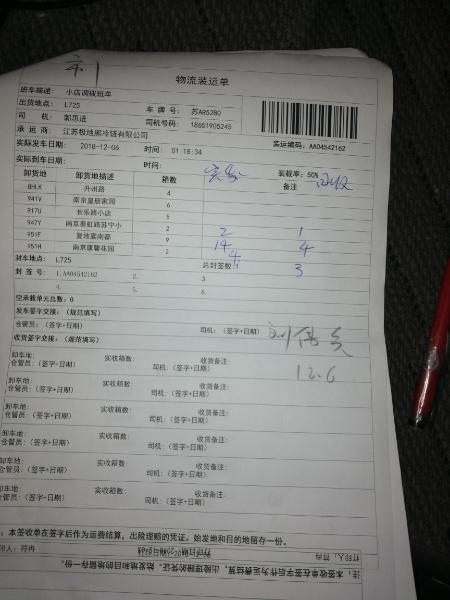 物流装运单
班车描述: 小店调拨班车
出货地点: L725 车 牌 号: 苏AR5280
司 机: 郭思进 司机号码: 18651905245
承 运 商: 江苏极地熊冷链有限公司 装运编码: AA04542162
实际发车日期: 2018-12-06 时间: 01:18:34
实际到车日期: 时间: 实发 装载率: 50% 回收
卸货地 卸货地描述 箱数 备注
84LK 升州路 4
941V 南京皇册家园 6
917U 长乐路小店 5
947Y 南京泰虹路苏宁小 2 2 1
951F 复地宴南都 9 14 4
951H 南京康馨花园 2 4 3
封车地点: L725 总封签数:
封 签 号: 1.AA04542162 2. 3
4. 5. 6.
空承载单元总数: 0
发车签字交接: (规范填写)
仓管员: (签字+日期) 司机: (签字+日期)
收货签字交接: (规范填写) 12.6
卸车地: 实收箱数: 收货备注:
仓管员: (签字+日期) 司机: (签字+日期)
卸车地: 实收箱数: 收货备注:
仓管员: (签字+日期) 司机: (签字+日期)
卸车地: 实收箱数: 收货备注:
仓管员: (签字+日期) 司机: (签字+日期)
卸车地: 实收箱数: 收货备注:
仓管员: (签字+日期) 司机: (签字+日期)
卸车地: 实收箱数: 收货备注:
仓管员: (签字+日期) 司机: (签字+日期)
: 本签收单在签字后作为运费结算, 出险理赔的凭证。始发地和目的地留存一份。
印人: 符冉
打印人: 符冉
注: 本签收单在签字后作为运费结算, 出险理赔的凭证。始发地和目的地留存一份。